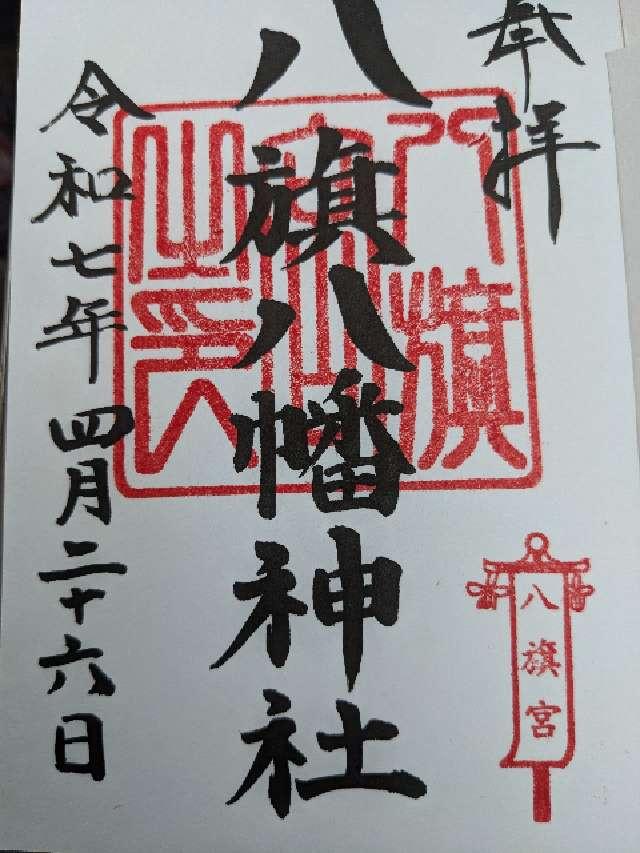 奉拝
八旗八幡神社
令和七年四月二十六日
八旗宮
八旗宮之印